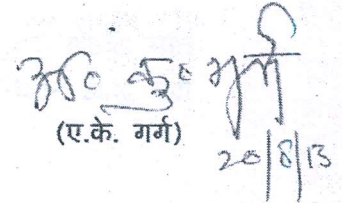 अ० कु० गर्ग
(ए.के. गर्ग)
20/8/13